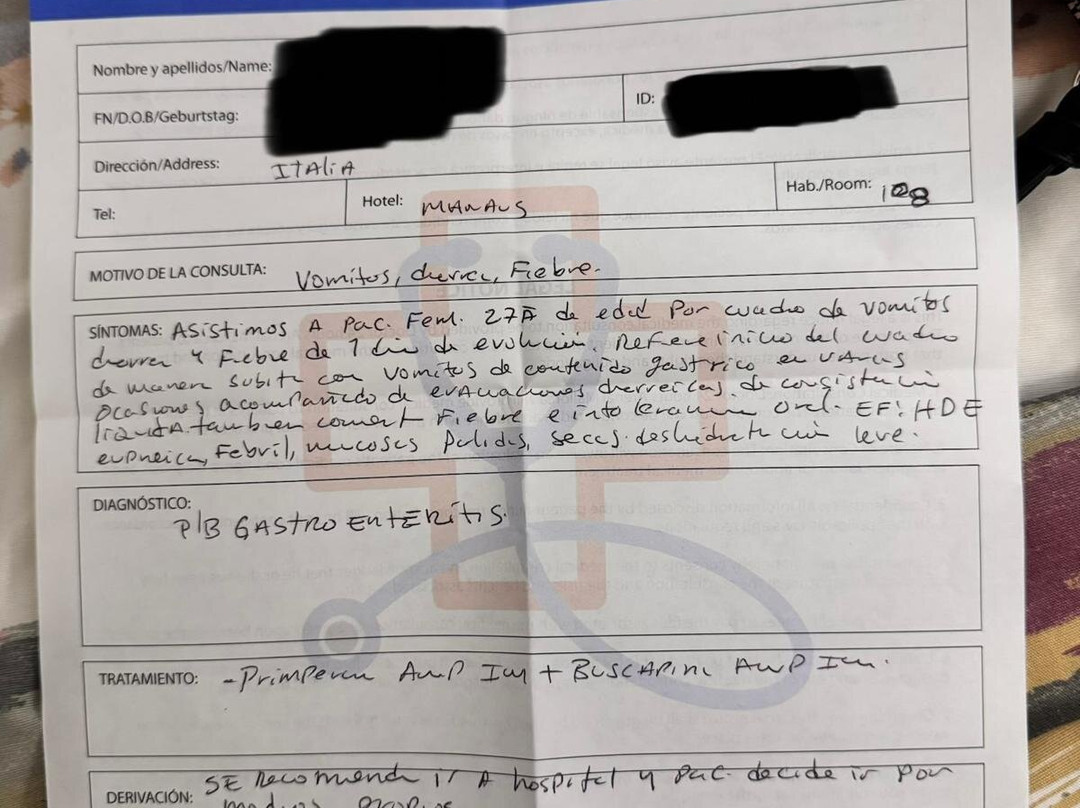 Nombre y apellidos/Name:
FN/D.O.B/Geburtstag:
ID:
Dirección/Address: ITALIA
Tel:
Hotel: MANAUS
Hab./Room: 108
MOTIVO DE LA CONSULTA: Vomitos, diarrea, Fiebre.
SÍNTOMAS: ASistimos A pac. Fem. 27A de edad Por cuadro de vomitos
diarrea y Fiebre de 1 dia de evolución. Refiere inicio del cuadro
de manera subita con vomitos de contenido gastrico en varias
ocasiones acompañado de evacuaciones diarreicas de consistencia
liquida tambien coment Fiebre e intolerancia oral. EF: HDE
eupneica, Febril, mucosas palidas, secas. deshidratacion leve.
DIAGNÓSTICO:
P/B GASTROENTERITIS.
TRATAMIENTO: - Primperan AMP IM + BUSCAPINA AMP IM.
DERIVACIÓN: SE Recomienda ir A hospital y pac. decide ir por
medios propios